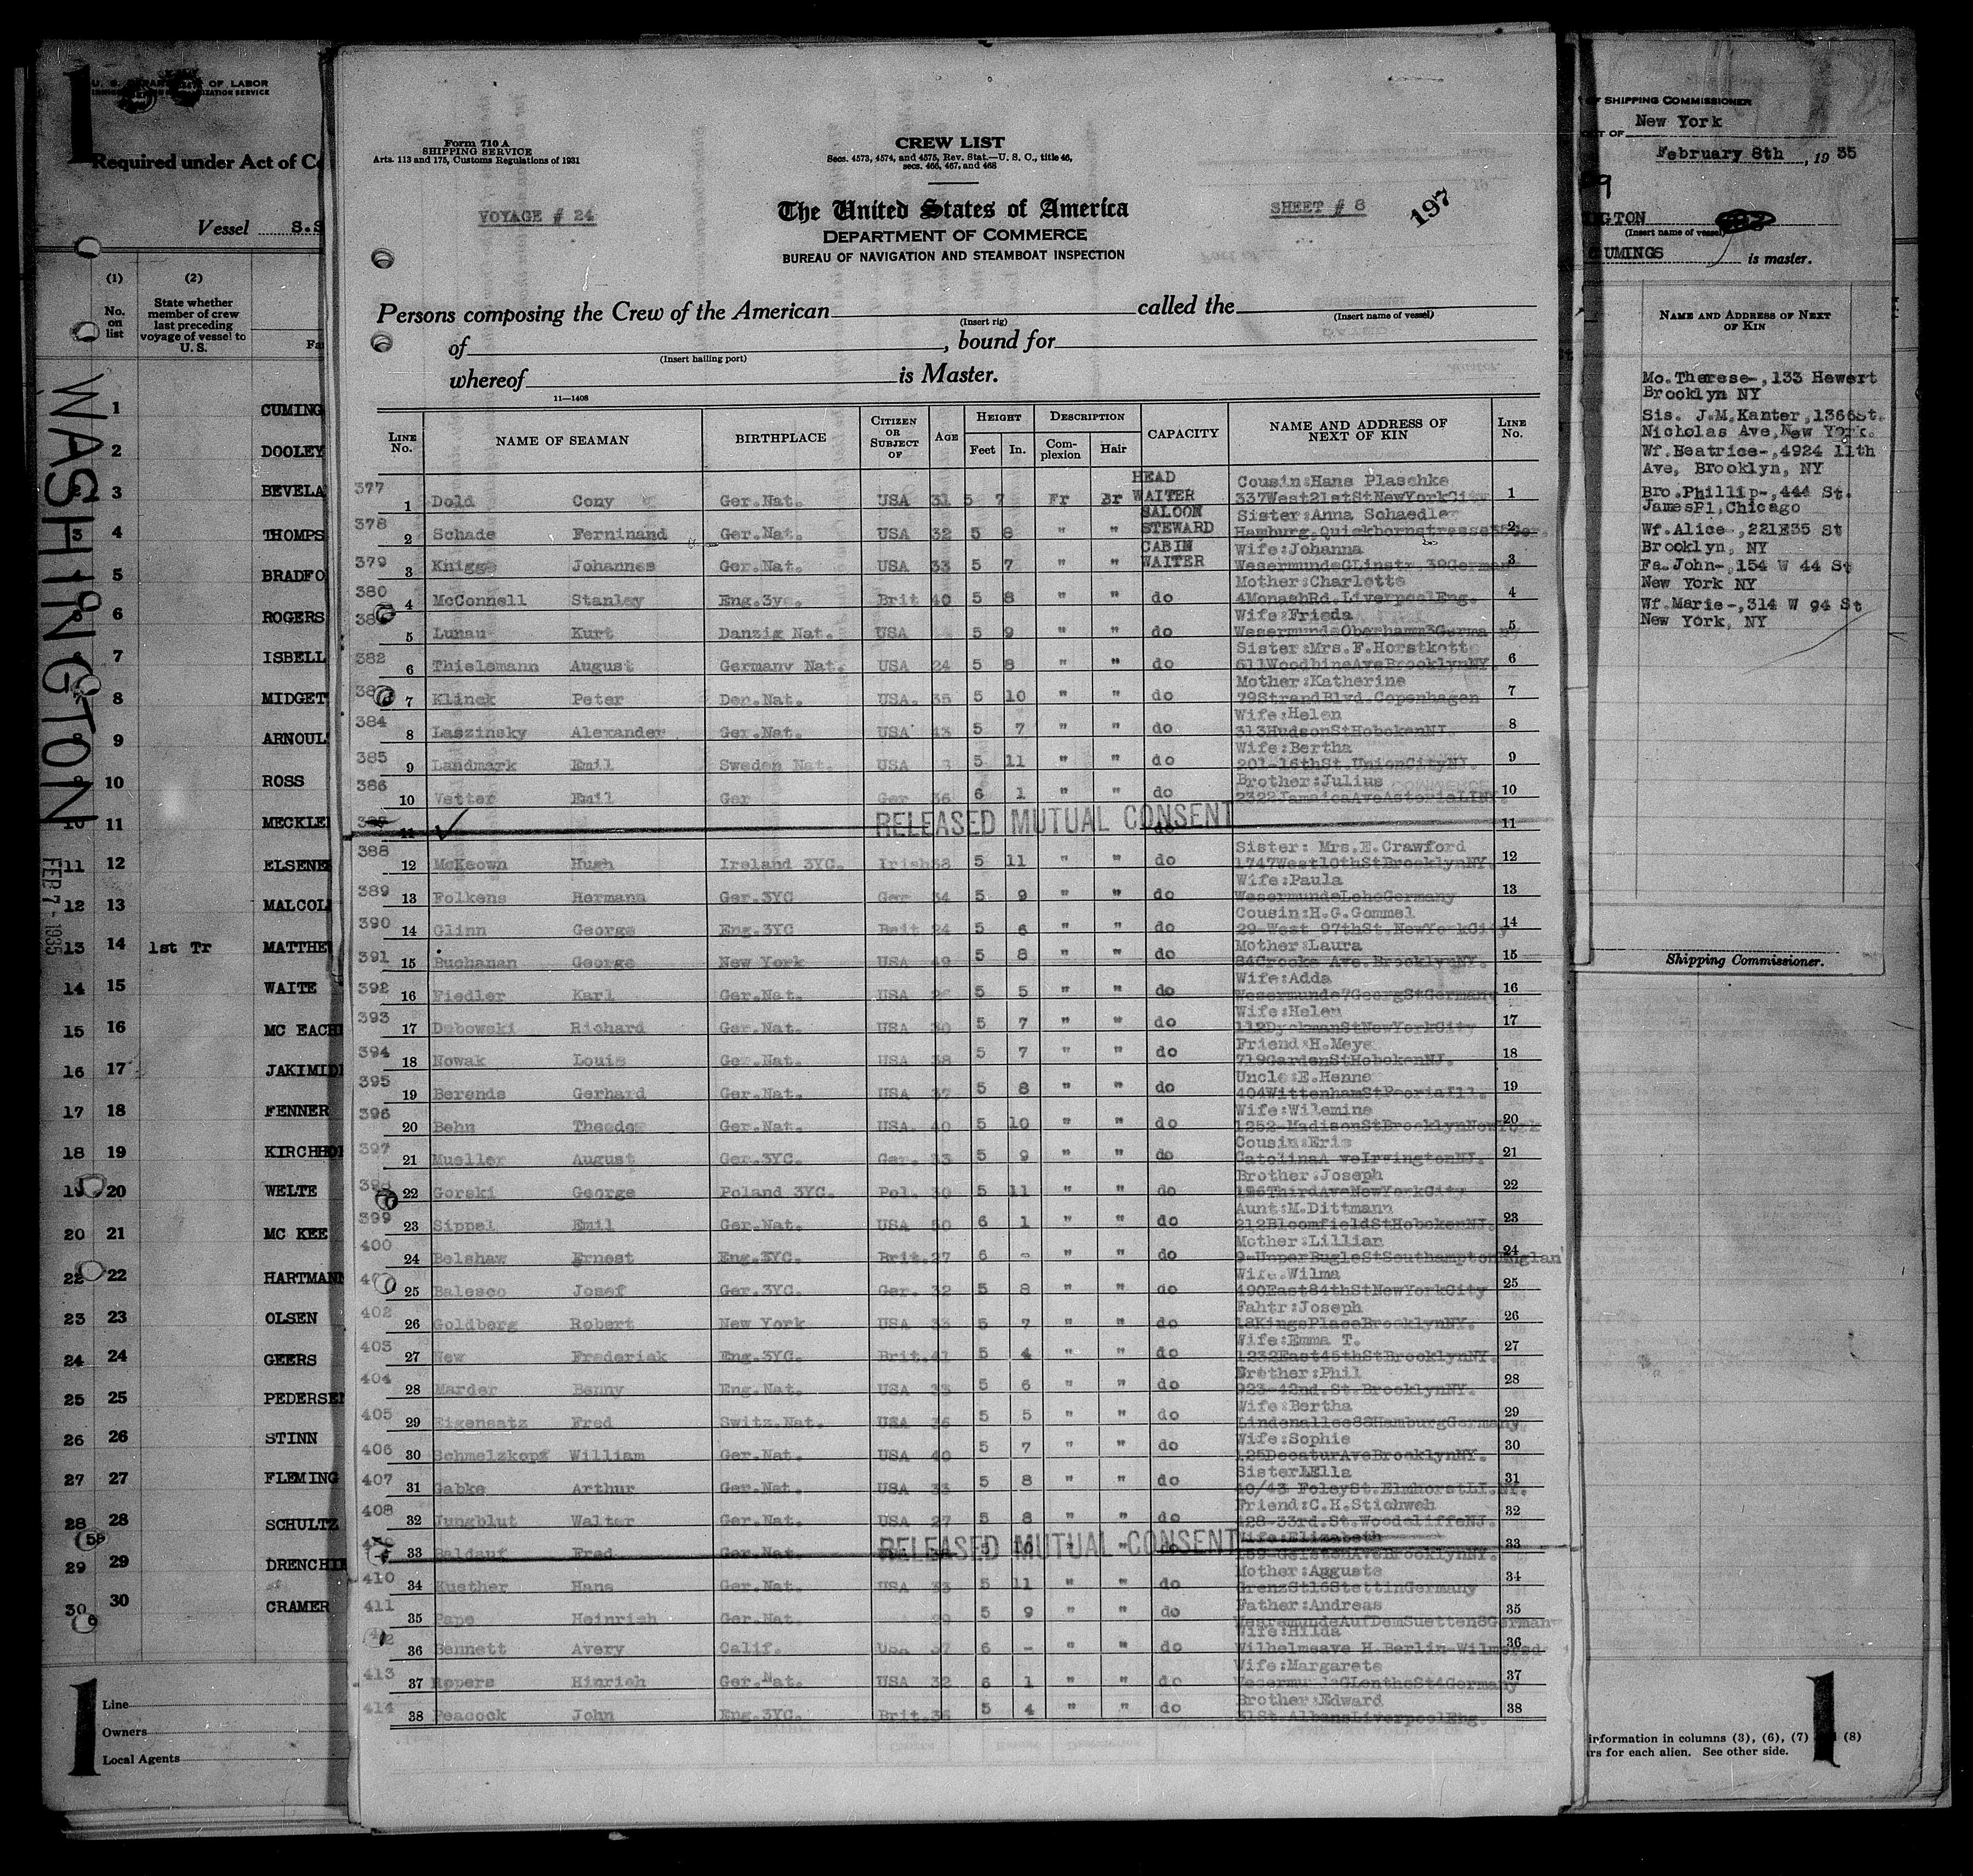 U. S. DEPARTMENT OF LABOR
Required under Act of
Vessel S.S
(1) (2)
No. on list
State whether member of crew last preceding voyage of vessel to U. S.
WASHINGTON
FEB 7 - 1935
1 CUMING
2 DOOLEY
3 BEVELA
4 THOMPS
5 BRADFO
6 ROGERS
7 ISBELL
8 MIDGET
9 ARNOUL
10 ROSS
10 11 MECKLE
11 12 ELSENE
12 13 MALCOL
13 14 1st Tr MATTHE
14 15 WAITE
15 16 MC EACH
16 17 JAKIMID
17 18 FENNER
18 19 KIRCHHO
19 20 WELTE
20 21 MC KEE
22 22 HARTMANN
23 23 OLSEN
24 24 GEERS
25 25 PEDERSEN
26 26 STINN
27 27 FLEMING
28 28 SCHULTZ
29 29 DRENCHI
30 30 CRAMER
1 Line
Owners
Local Agents
Form 710 A
SHIPPING SERVICE
Arts. 113 and 175, Customs Regulations of 1931
CREW LIST
Secs. 4573, 4574, and 4575, Rev. Stat.—U. S. C., title 46,
secs. 466, 467, and 468
VOYAGE # 24
The United States of America
SHEET # 8
197
DEPARTMENT OF COMMERCE
BUREAU OF NAVIGATION AND STEAMBOAT INSPECTION
Persons composing the Crew of the American called the
(Insert rig) (Insert name of vessel)
of , bound for
(Insert hailing port)
whereof is Master.
11—1408
LINE No. NAME OF SEAMAN BIRTHPLACE CITIZEN OR SUBJECT OF AGE HEIGHT Feet In. DESCRIPTION Complexion Hair CAPACITY NAME AND ADDRESS OF NEXT OF KIN LINE No.
377 1 Dold Cony Ger.Nat. USA 31 5 7 Fr Br HEAD WAITER Cousin:Hans Plaschke 337West21stStNewYorkCity 1
378 2 Schade Ferninand Ger.Nat. USA 32 5 8 " " SALOON STEWARD Sister:Anna Schaedler Hamburg,Quickbornstresse 2
379 3 Knigge Johannes Ger.Nat. USA 33 5 7 " " CABIN WAITER Wife:Johanna WesermundeGLinstr.39German 3
380 4 McConnell Stanley Eng.3yc. Brit 40 5 8 " " do Mother:Charlotte 4MonashRd.LiverpoolEng. 4
5 Lunau Kurt Danzig Nat. USA 5 9 " " do Wife:Frieda WesermundeOberhamm3Germa 5
382 6 Thielemann August Germany Nat. USA 24 5 8 " " do Sister:Mrs.F.Horstkott 611WoodbineAveBrooklynNY 6
7 Klinck Peter Den.Nat. USA. 35 5 10 " " do Mother:Katherine 79StrandBlvd.Copenhagen 7
384 8 Laszinsky Alexander Ger.Nat. USA 43 5 7 " " do Wife:Helen 313HudsonStHobokenNJ. 8
385 9 Landmark Emil Sweden Nat. USA 5 11 " " do Wife:Bertha 201-16thSt.UnionCityNJ. 9
386 10 Vetter Emil Ger Ger 36 6 1 " " do Brother:Julius 2322JamaicaAveAstoriaLINY. 10
11 RELEASED MUTUAL CONSENT do 11
388 12 McKeown Hugh Ireland 3YC. Irish38 5 11 " " do Sister: Mrs.E.Crawford 1747West10thStBrooklynNY. 12
389 13 Folkens Hermann Ger.3YC Ger 34 5 9 " " do Wife:Paula WesermundeLoheGermany 13
390 14 Glinn George Eng.3YC Brit 24 5 6 " " do Cousin:H.G.Gommel 29-West 97thSt.NewYorkCity 14
391 15 Buchanan George New York USA 49 5 8 " " do Mother:Laura 84Crooke Ave.BrooklynNY. 15
392 16 Fiedler Karl Ger.Nat. USA 5 5 " " do Wife:Adda Wesermunde7GeorgStGermany 16
393 17 Debowski Richard Ger.Nat. USA 30 5 7 " " do Wife:Helen 112DyckmanStNewYorkCity 17
394 18 Nowak Louis Ger.Nat. USA 38 5 7 " " do Friend:H.Meye 719GardenStHobokenNJ. 18
395 19 Berends Gerhard Ger.Nat. USA 37 5 8 " " do Uncle:E.Henne 404WittenhamStPeoriaIll. 19
396 20 Behn Theodor Ger.Nat. USA. 40 5 10 " " do Wife:Wilemine 1252-MadisonStBrooklynNewYork 20
397 21 Mueller August Ger.3YC. Ger. 33 5 9 " " do Cousin:Eric CatolinaA veIrvingtonNJ. 21
398 22 Gorski George Poland 3YC. Pol. 30 5 11 " " do Brother:Joseph ThirdAveNewYorkCity 22
399 23 Sippel Emil Ger.Nat. USA 50 6 1 " " do Aunt:M.Dittmann 212BloomfieldStHobokenNJ. 23
400 24 Belshaw Ernest Eng.3YC. Brit.27 6 - " " do Mother:Lillian 9-UpperBugleStSouthamptonEnglan 24
25 Balesco Josef Ger.3YC. Ger. 32 5 8 " " do Wife.Wilma 490East84thStNewYorkCity 25
402 26 Goldberg Robert New York USA 33 5 7 " " do Fahtr:Joseph 18KingsPlaceBrooklynNY. 26
403 27 New Frederick Eng.3YC. Brit.41 5 4 " " do Wife:Emma T. 1232East45thStBrooklynNY. 27
404 28 Marder Benny Eng.Nat. USA 33 5 6 " " do Brother:Phil 923-42nd.St.BrooklynNY. 28
405 29 Eigensatz Fred Switz.Nat. USA 36 5 5 " " do Wife:Bertha Lindenallee88HamburgGermany 29
406 30 Schmelzkopf William Ger.Nat. USA 40 5 7 " " do Wife:Sophie 125DecaturAveBrooklynNY. 30
407 31 Gabke Arthur Ger.Nat. USA 33 5 8 " " do SisterLElla 40/43 FoleySt.ElmhorstLI.NY. 31
408 32 Jungblut Walter Ger.Nat. USA 27 5 8 " " do Friend:C.H.Stichweh 128-33rd.St.WoodcliffeNJ. 32
33 Baldauf Fred Ger.Nat. RELEASED MUTUAL CONSENT 5 10 Wife:Elizabeth GerstenAveBrooklynNY. 33
410 34 Kuether Hans Ger.Nat. USA 33 5 11 " " do Mother:Auguste GrenzSt16StettinGermany 34
411 35 Pape Heinrich Ger.Nat. 5 9 " " do Father:Andreas WesermundeAufDemSuetten8German 35
36 Bennett Avery Calif. USA 37 6 - " " do Wife:Hilda Wilhelmsave H.Berlin-Wilmersd 36
413 37 Repers Hinrich Ger.Nat. USA 32 6 1 " " do Wife:Margarete 37
414 38 Peacock John Eng.3YC. Brit.36 5 4 " " do Brother:Edward 51St.AlbansLiverpoolEng. 38
OF SHIPPING COMMISSIONER
New York
February 8th, 19 35
INGTON
(Insert name of vessel)
CUMINGS is master.
NAME AND ADDRESS OF NEXT OF KIN
Mo.Therese-,133 Hewert
Brooklyn NY
Sis. J.M.Kanter,1366St.
Nicholas Ave,New York.
Wf.Beatrice-,4924 11th
Ave, Brooklyn, NY
Bro.Phillip-,444 St.
JamesPl,Chicago
Wf.Alice-,221E35 St
Brooklyn, NY
Fa.John-,154 W 44 St
New York NY
Wf.Marie-,314 W 94 St
New York, NY
Shipping Commissioner.
information in columns (3), (6), (7) (8)
rs for each alien. See other side.
1